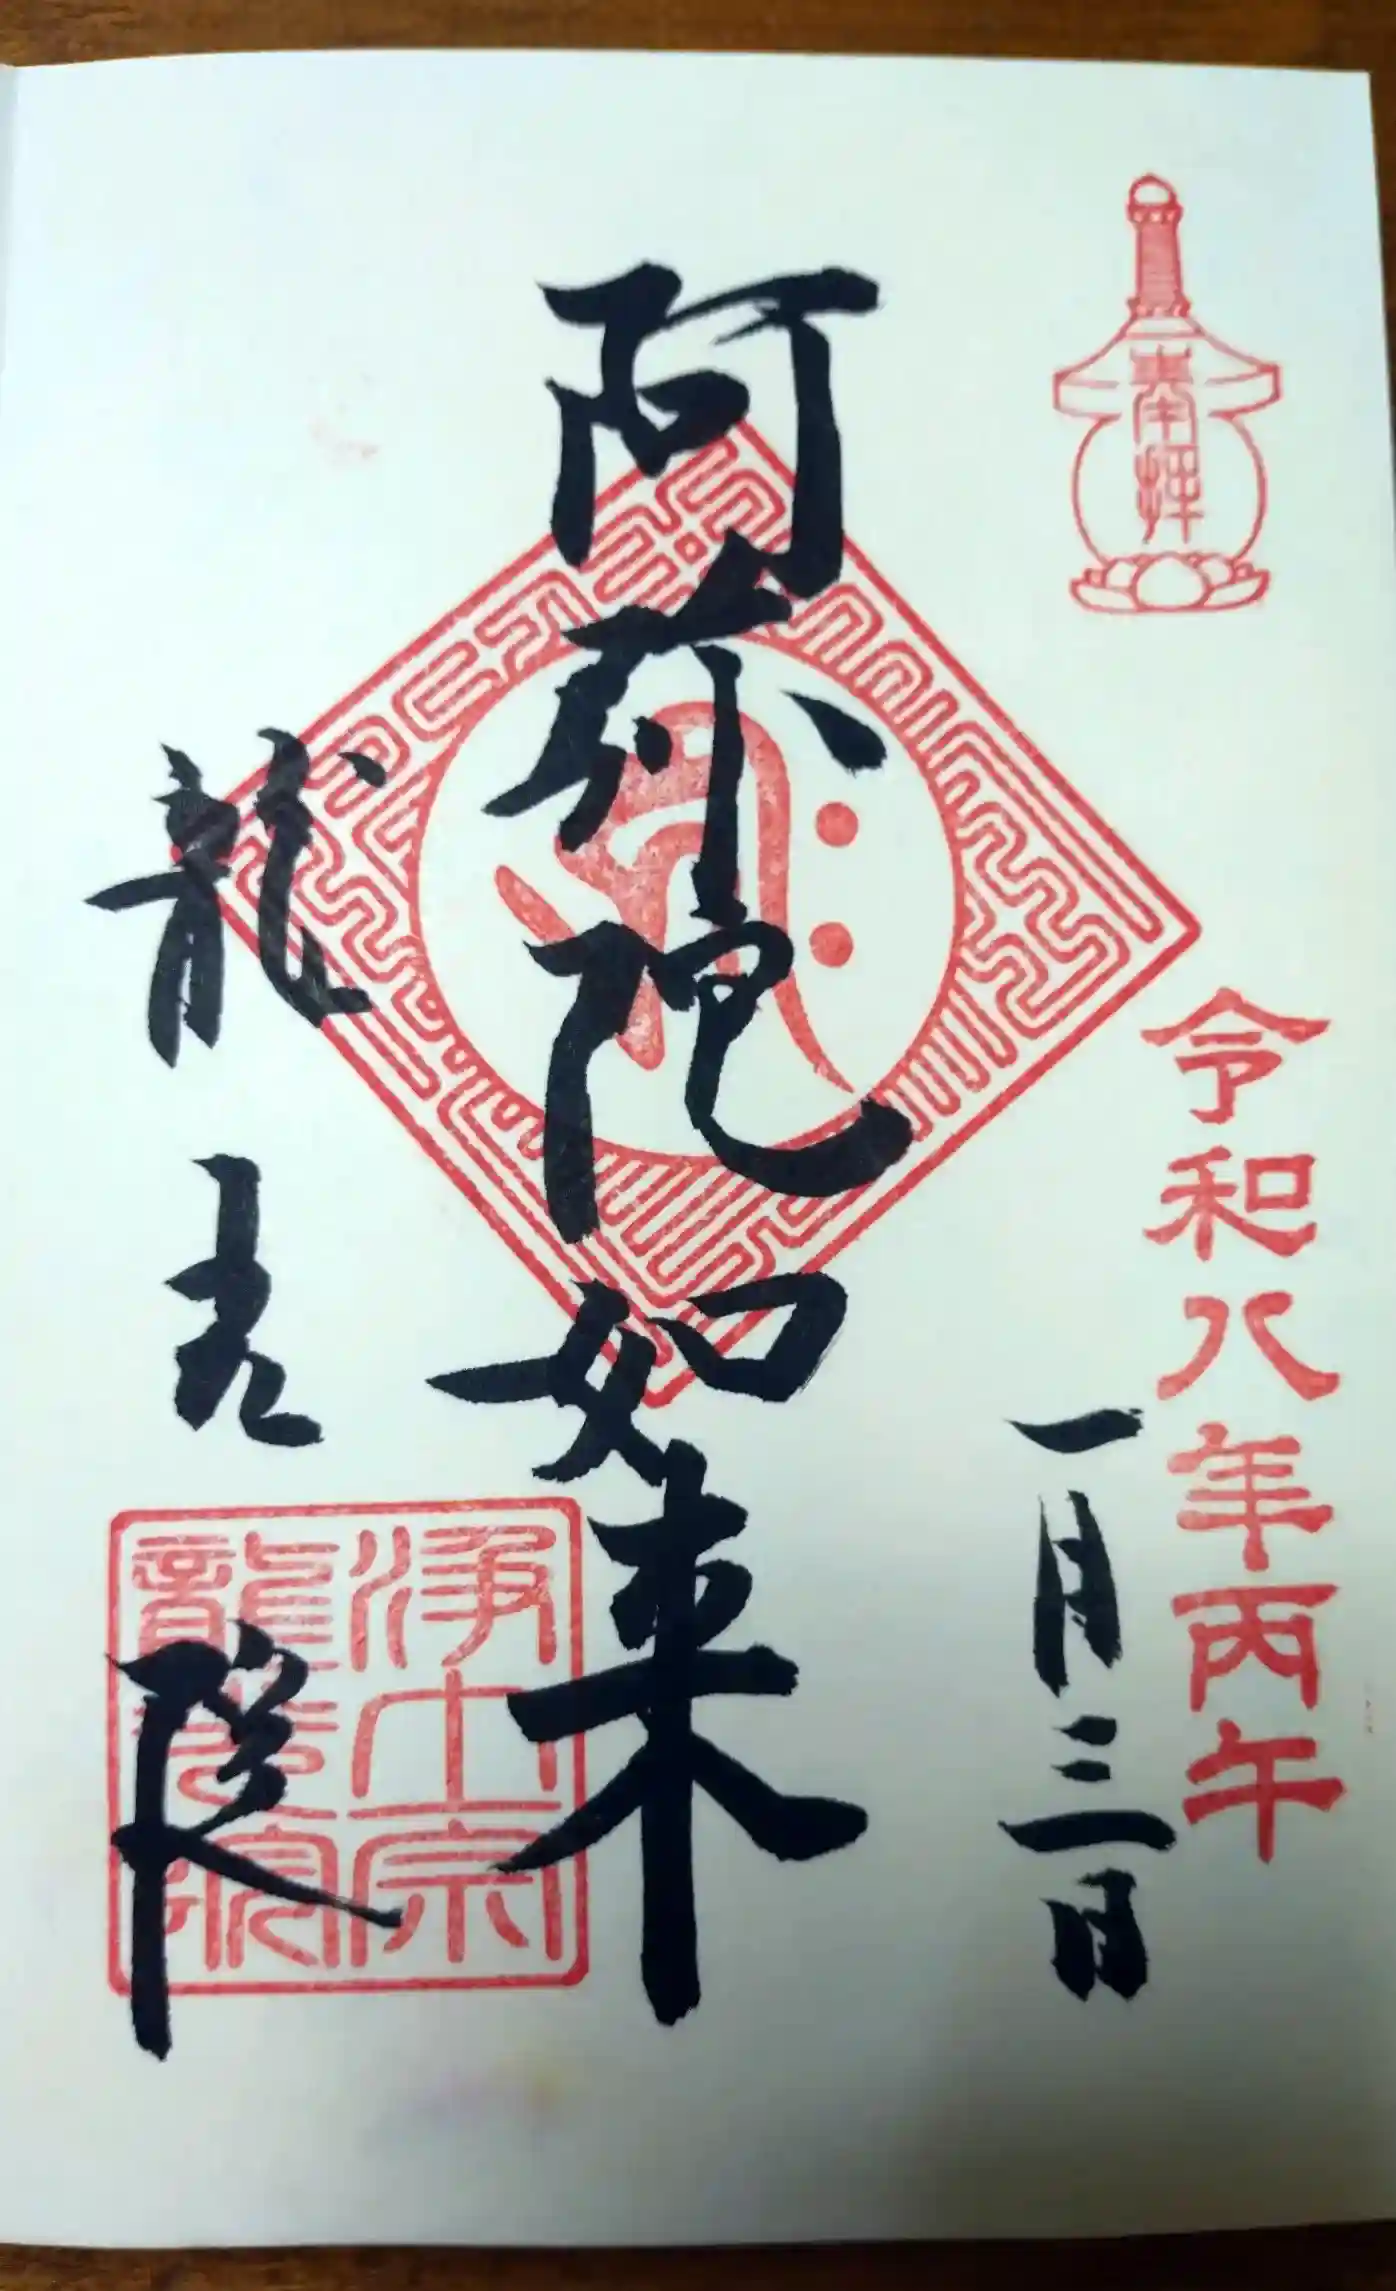 奉拝
令和八年丙午
一月三日
阿弥陀如来
龍 院
浄土宗
龍 院